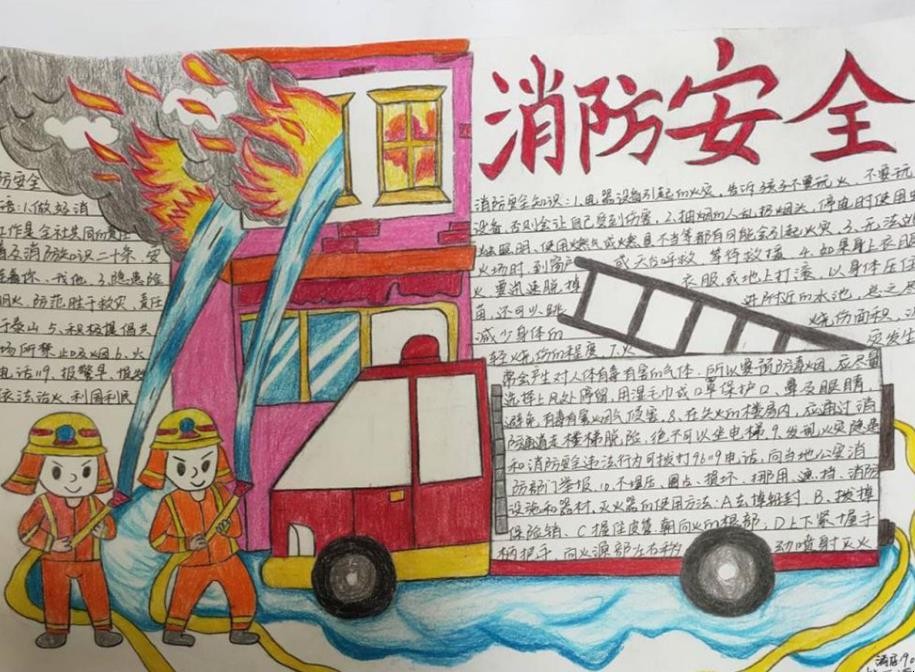 消防安全
防安全
语:1.做好消
工作是全社共同的责任
普及消防知识二十条,安
系着你、我他 3.隐患险
明火,防范胜于救灾,责任
于泰山 5.积极提倡共
场所禁止吸烟 6.火
电话119,报警早,损失
依法治火 利国利民
消防安全知识:1.电器设备引起的火灾,告诉孩子不要玩火,不要玩
设备,否则会让自己受到伤害,2.抽烟的人乱扔烟头,停电时使用
蜡照明,使用燃气或燃具不当等都有可能会引起火灾 3.无法
火场时,到窗户 或天台呼救,等待救援 4.如果身上衣服
火,要迅速脱掉 衣服,或地上打滚,以身体压住
,还可以跳 进附近的水池,总之尽
减少身体的 烧伤面积,
轻烧伤的程度,7.火
常会产生对人体有毒有害的气体,所以要预防毒烟,应尽量
选择上风处停留,用湿毛巾或口罩保护口、鼻及眼睛
避免有毒有害烟气侵害,8.在失火的楼房内,应通过消
防通道走楼梯脱险,绝不可以坐电梯,9.发现火灾隐患
和消防安全违法行为可拨打96119电话,向当地公安消
防部门举报,10.不埋压、圈占、损坏、挪用、遮挡、消防
设施和器材,灭火器的使用方法:A.去掉铅封,B.拔掉
保险销、C握住皮管朝向火的根部,D上下紧握手
柄把手,向火源部左右移 动喷射灭火